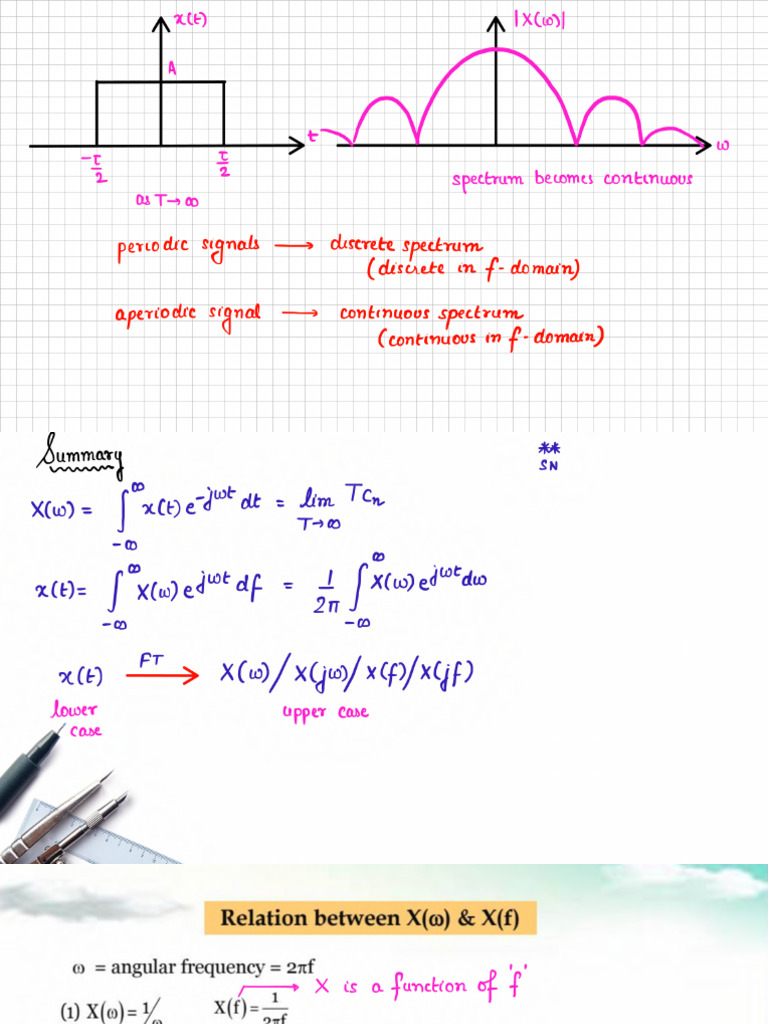 x(t)
|X(ω)|
A
t
-τ/2
τ/2
ω
spectrum becomes continuous
as T→∞
periodic signals → discrete spectrum
(discrete in f-domain)
aperiodic signal → continuous spectrum
(continuous in f-domain)
Summary
**
SN
X(ω) = ∫_{-∞}^{∞} x(t) e^{-jωt} dt = lim_{T→∞} T c_n
x(t) = ∫_{-∞}^{∞} X(ω) e^{jωt} df = 1/2π ∫_{-∞}^{∞} X(ω) e^{jωt} dω
x(t) FT → X(ω)/X(jω)/X(f)/X(jf)
lower case
upper case
Relation between X(ω) & X(f)
ω = angular frequency = 2πf
→ X is a function of 'f'
(1) X(ω) = 1/ω X(f) = 1/2πf